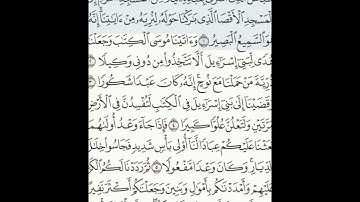 لْمَسْجِدِ ٱلْأَقْصَا ٱلَّذِى بَٰرَكْنَا حَوْلَهُۥ لِنُرِيَهُۥ مِنْ ءَايَٰتِنَآ إِنَّهُۥ
هُوَ ٱلسَّمِيعُ ٱلْبَصِيرُ ١ وَءَاتَيْنَا مُوسَى ٱلْكِتَٰبَ وَجَعَلْنَٰ
هُدًى لِّبَنِىٓ إِسْرَٰٓءِيلَ أَلَّا تَتَّخِذُوا۟ مِن دُونِى وَكِيلًا ٢
ذُرِّيَّةَ مَنْ حَمَلْنَا مَعَ نُوحٍ إِنَّهُۥ كَانَ عَبْدًا شَكُورًا ٣
وَقَضَيْنَآ إِلَىٰ بَنِىٓ إِسْرَٰٓءِيلَ فِى ٱلْكِتَٰبِ لَتُفْسِدُنَّ فِى ٱلْأَرْضِ
مَرَّتَيْنِ وَلَتَعْلُنَّ عُلُوًّا كَبِيرًا ٤ فَإِذَا جَآءَ وَعْدُ أُولَىٰهُمَا
عَلَيْكُمْ عِبَادًا لَّنَآ أُو۟لِى بَأْسٍ شَدِيدٍ فَجَاسُوا۟ خِلَٰلَ
ٱلدِّيَارِ وَكَانَ وَعْدًا مَّفْعُولًا ٥ ثُمَّ رَدَدْنَا لَكُمُ ٱلْكَرَّ
عَلَيْهِمْ وَأَمْدَدْنَٰكُم بِأَمْوَٰلٍ وَبَنِينَ وَجَعَلْنَٰكُمْ أَكْثَرَ نَفِيرًا